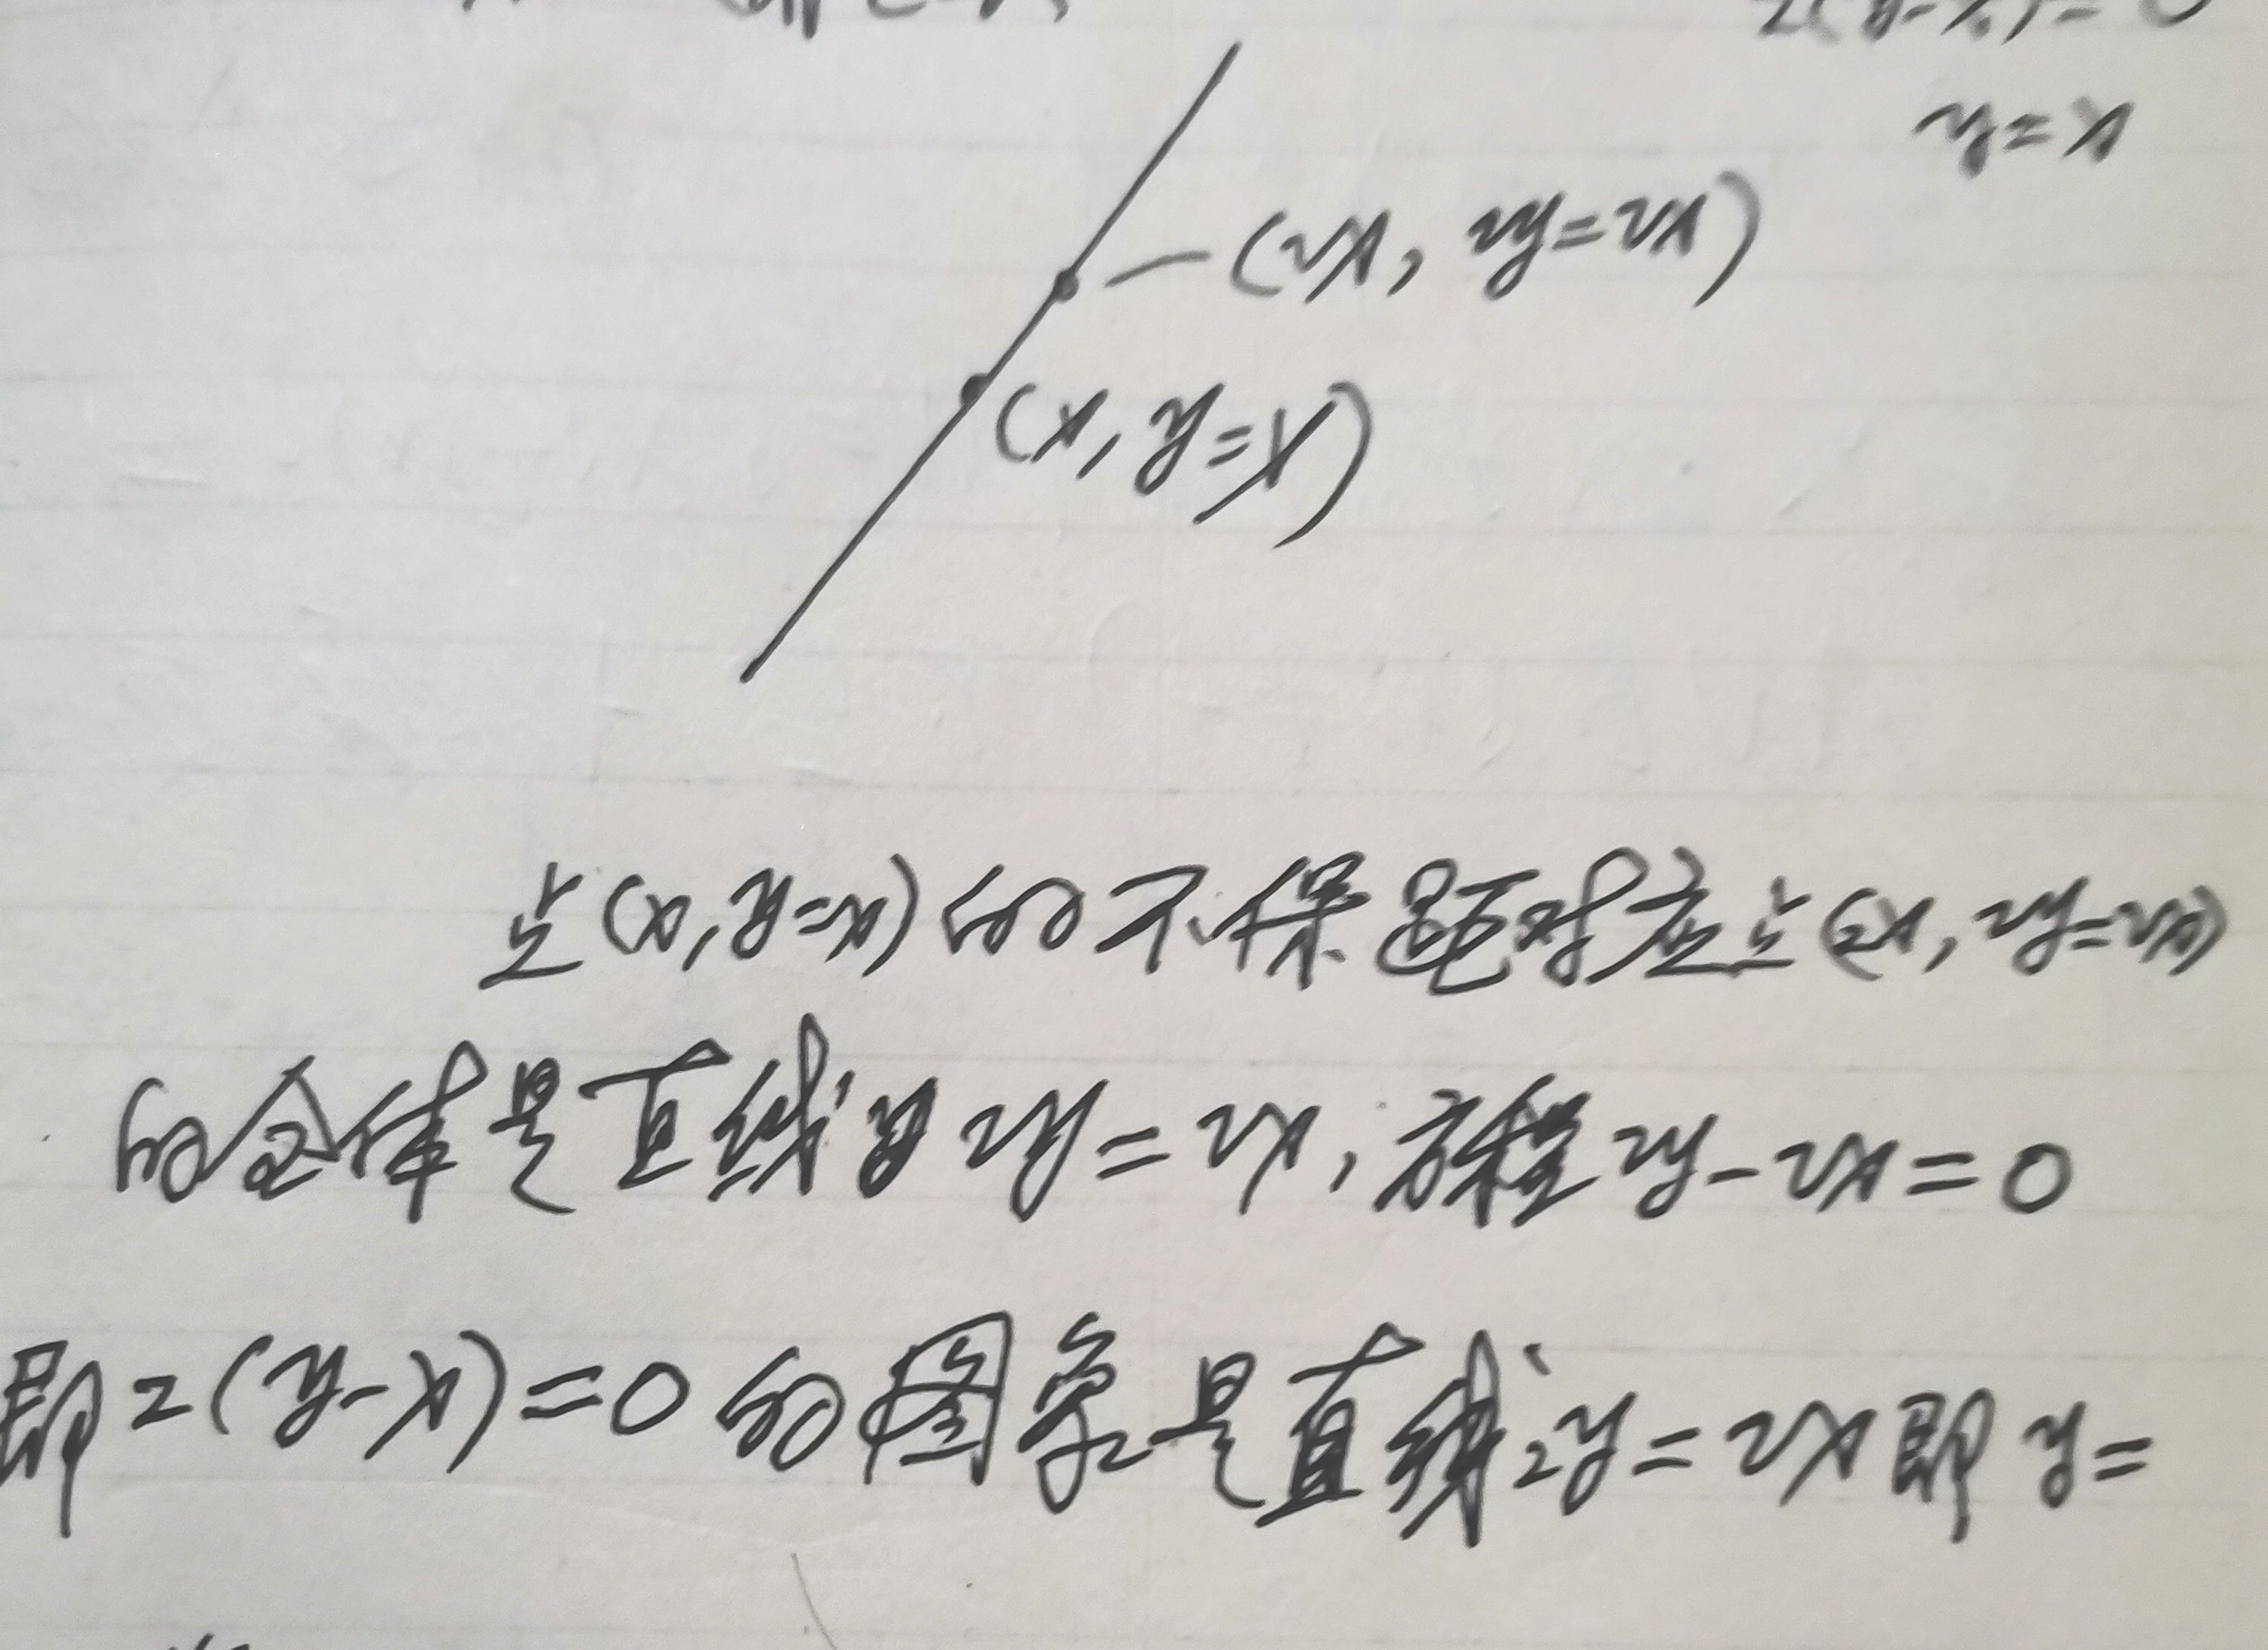 2(y-x)=0
y=x
(2x, 2y=2x)
(x, y=x)
点(x,y=x)的不保距对应点(2x, 2y=2x)
的全体是直线2y=2x,方程2y-2x=0
即2(y-x)=0的图象是直线2y=2x即y=